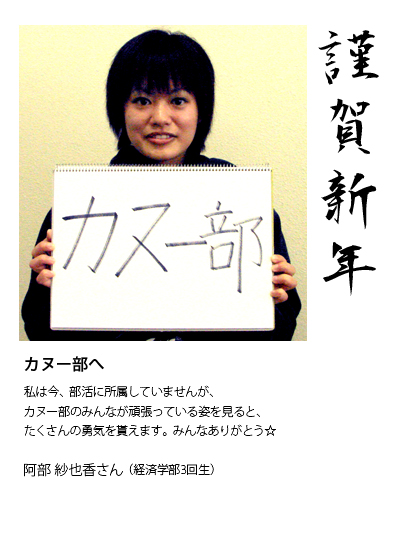 謹賀新年
カヌー部
カヌー部へ
私は今、部活に所属していませんが、
カヌー部のみんなが頑張っている姿を見ると、
たくさんの勇気を貰えます。みんなありがとう☆
阿部 紗也香さん（経済学部3回生）